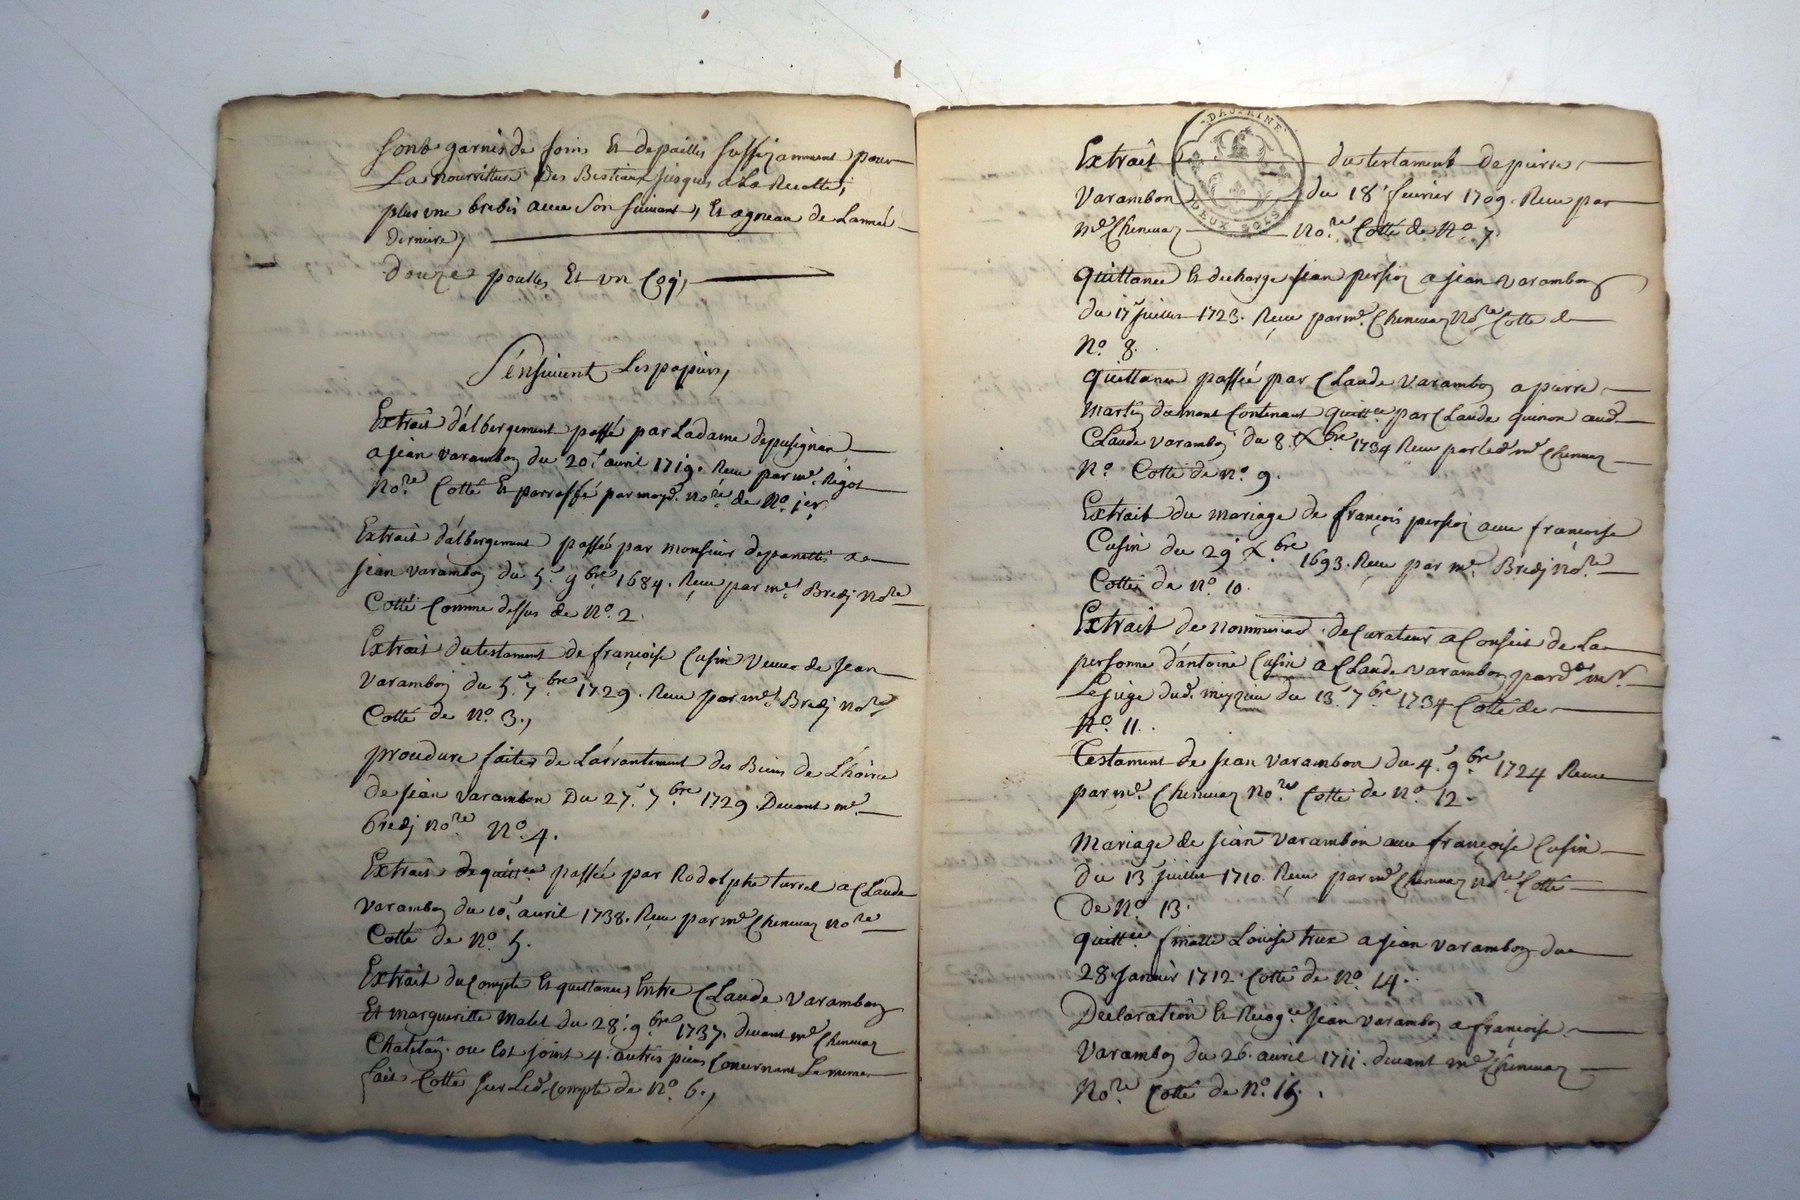 sont garnis de foins Et de pailles suffizamment pour
La nourritture des Bestiaux jusques a La Recolte,
plus une brebis avec son suivant, Et agneau de L'année
derniere,
douze poulles Et un Coq,
S'ensuivent Les papiers,
Extrait d'albergement passé par Ladame depusignan
a jean varambon du 20e avril 1719. Receu par me. Rigot
Nore Cotté Et parraffé par moyd. nore de No. 1er
Extrait d'albergement passé par monsieur depanette a
jean varambon du 5e 9bre 1684. Receu par me. Bredy Nore
Cotté Comme dessus de No. 2.
Extrait du testament de françoise Cusin veuve de Jean
varambon du 5e 7bre 1729. Receu par me Bredy Nore
Cotté de No. 3.,
procedure faites de L'arrantement des Biens de L'hoirie
de jean varambon Du 27e 7bre 1729. Devant me.
bredy nore No. 4.
Extrait de quittce passée par Rodolphe turrel a Claude
varambon du 10e avril 1738. Receu par me Chenevaz nore
Cotté de No. 5.
Extrait du Compte Et quittances Entre Claude varambon
Et margueritte Malet du 28e 9bre 1737. devant me Chenevaz
Chatelain ou Est joint 4. autres pieces Concernant Le meme
fait Cotté sur Led. Compte de No. 6.,
DAUPHINE
DEUX SOLS
Extrait du testament de pierre
varambon du 18e fevrier 1709. Receu par
me Chenevaz Nore Cotté de No. 7.
Quittance Et decharge jean persion a jean varambon
du 17e juillet 1723. Receu par me. Chenevaz Nore Cotté de
No. 8.
Quittance passée par Claude varambon a pierre
Martin dument Contenant quittce par Claude quinon aud.
Claude varambon du 8e Xbre 1734 Receu par led. me Chenevaz
No. Cotté de No. 9.
Extrait du mariage de françois persion avec francoise
Cusin du 29e Xbre 1693. Receu par me. Bredy Nore
Cotté de No. 10.
Extrait de nomminaon de Curateur a Conseil de La
personne d'antoine Cusin a Claude varambon par de mr
Le juge dud. meyzieu du 13e 7bre 1734 Cotté de
No. 11.
Testament de jean varambon du 4e 9bre 1724 Receu
par me. Chenevaz nore Cotté de No. 12.
Mariage de jean varambon avec françoise Cusin
du 13e juillet 1710. Receu par me Chenevaz nore Cotté
De No. 13.
quittce finalle Louise treux a jean varambon du
28. Janvier 1712. Cotté de No. 14.
Declaration Et Recogce jean varambon a françoise
varambon du 26. avril 1711. devant me Chenevaz
Nore Cotté de No. 15.